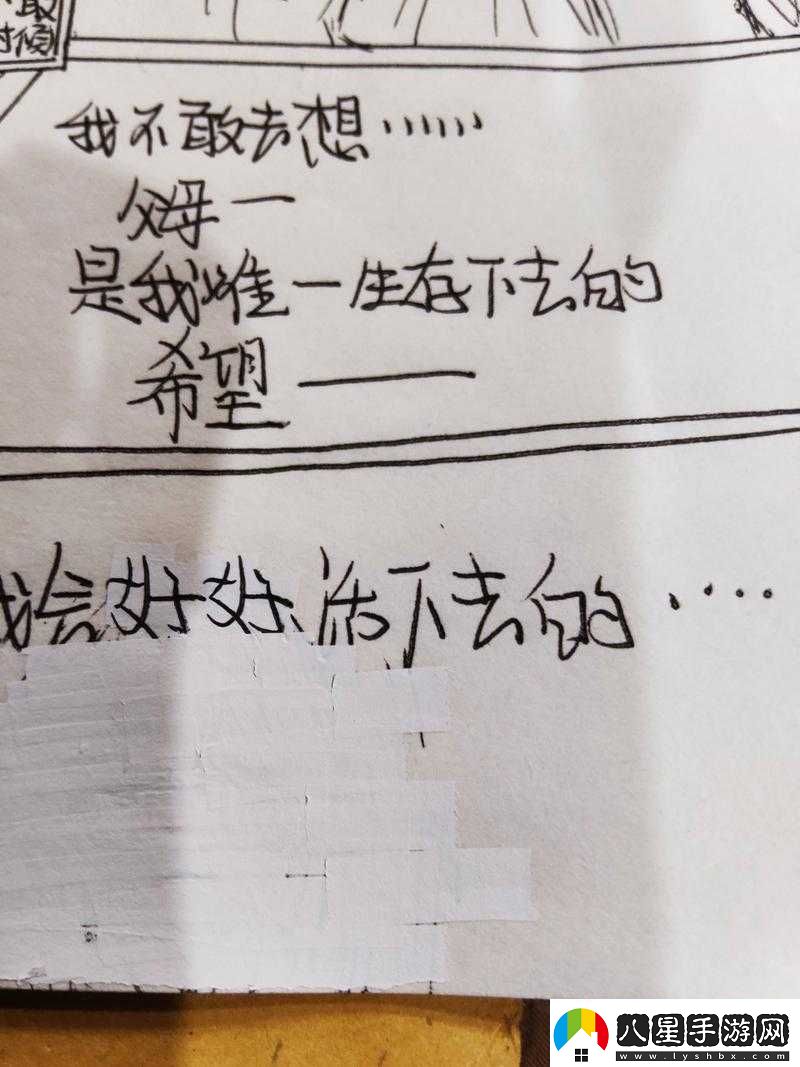 最
时候
我不敢去想……
父母一
是我唯一生存下去的
希望——
我会好好活下去的····
八星手游网
www.lyshbx.com